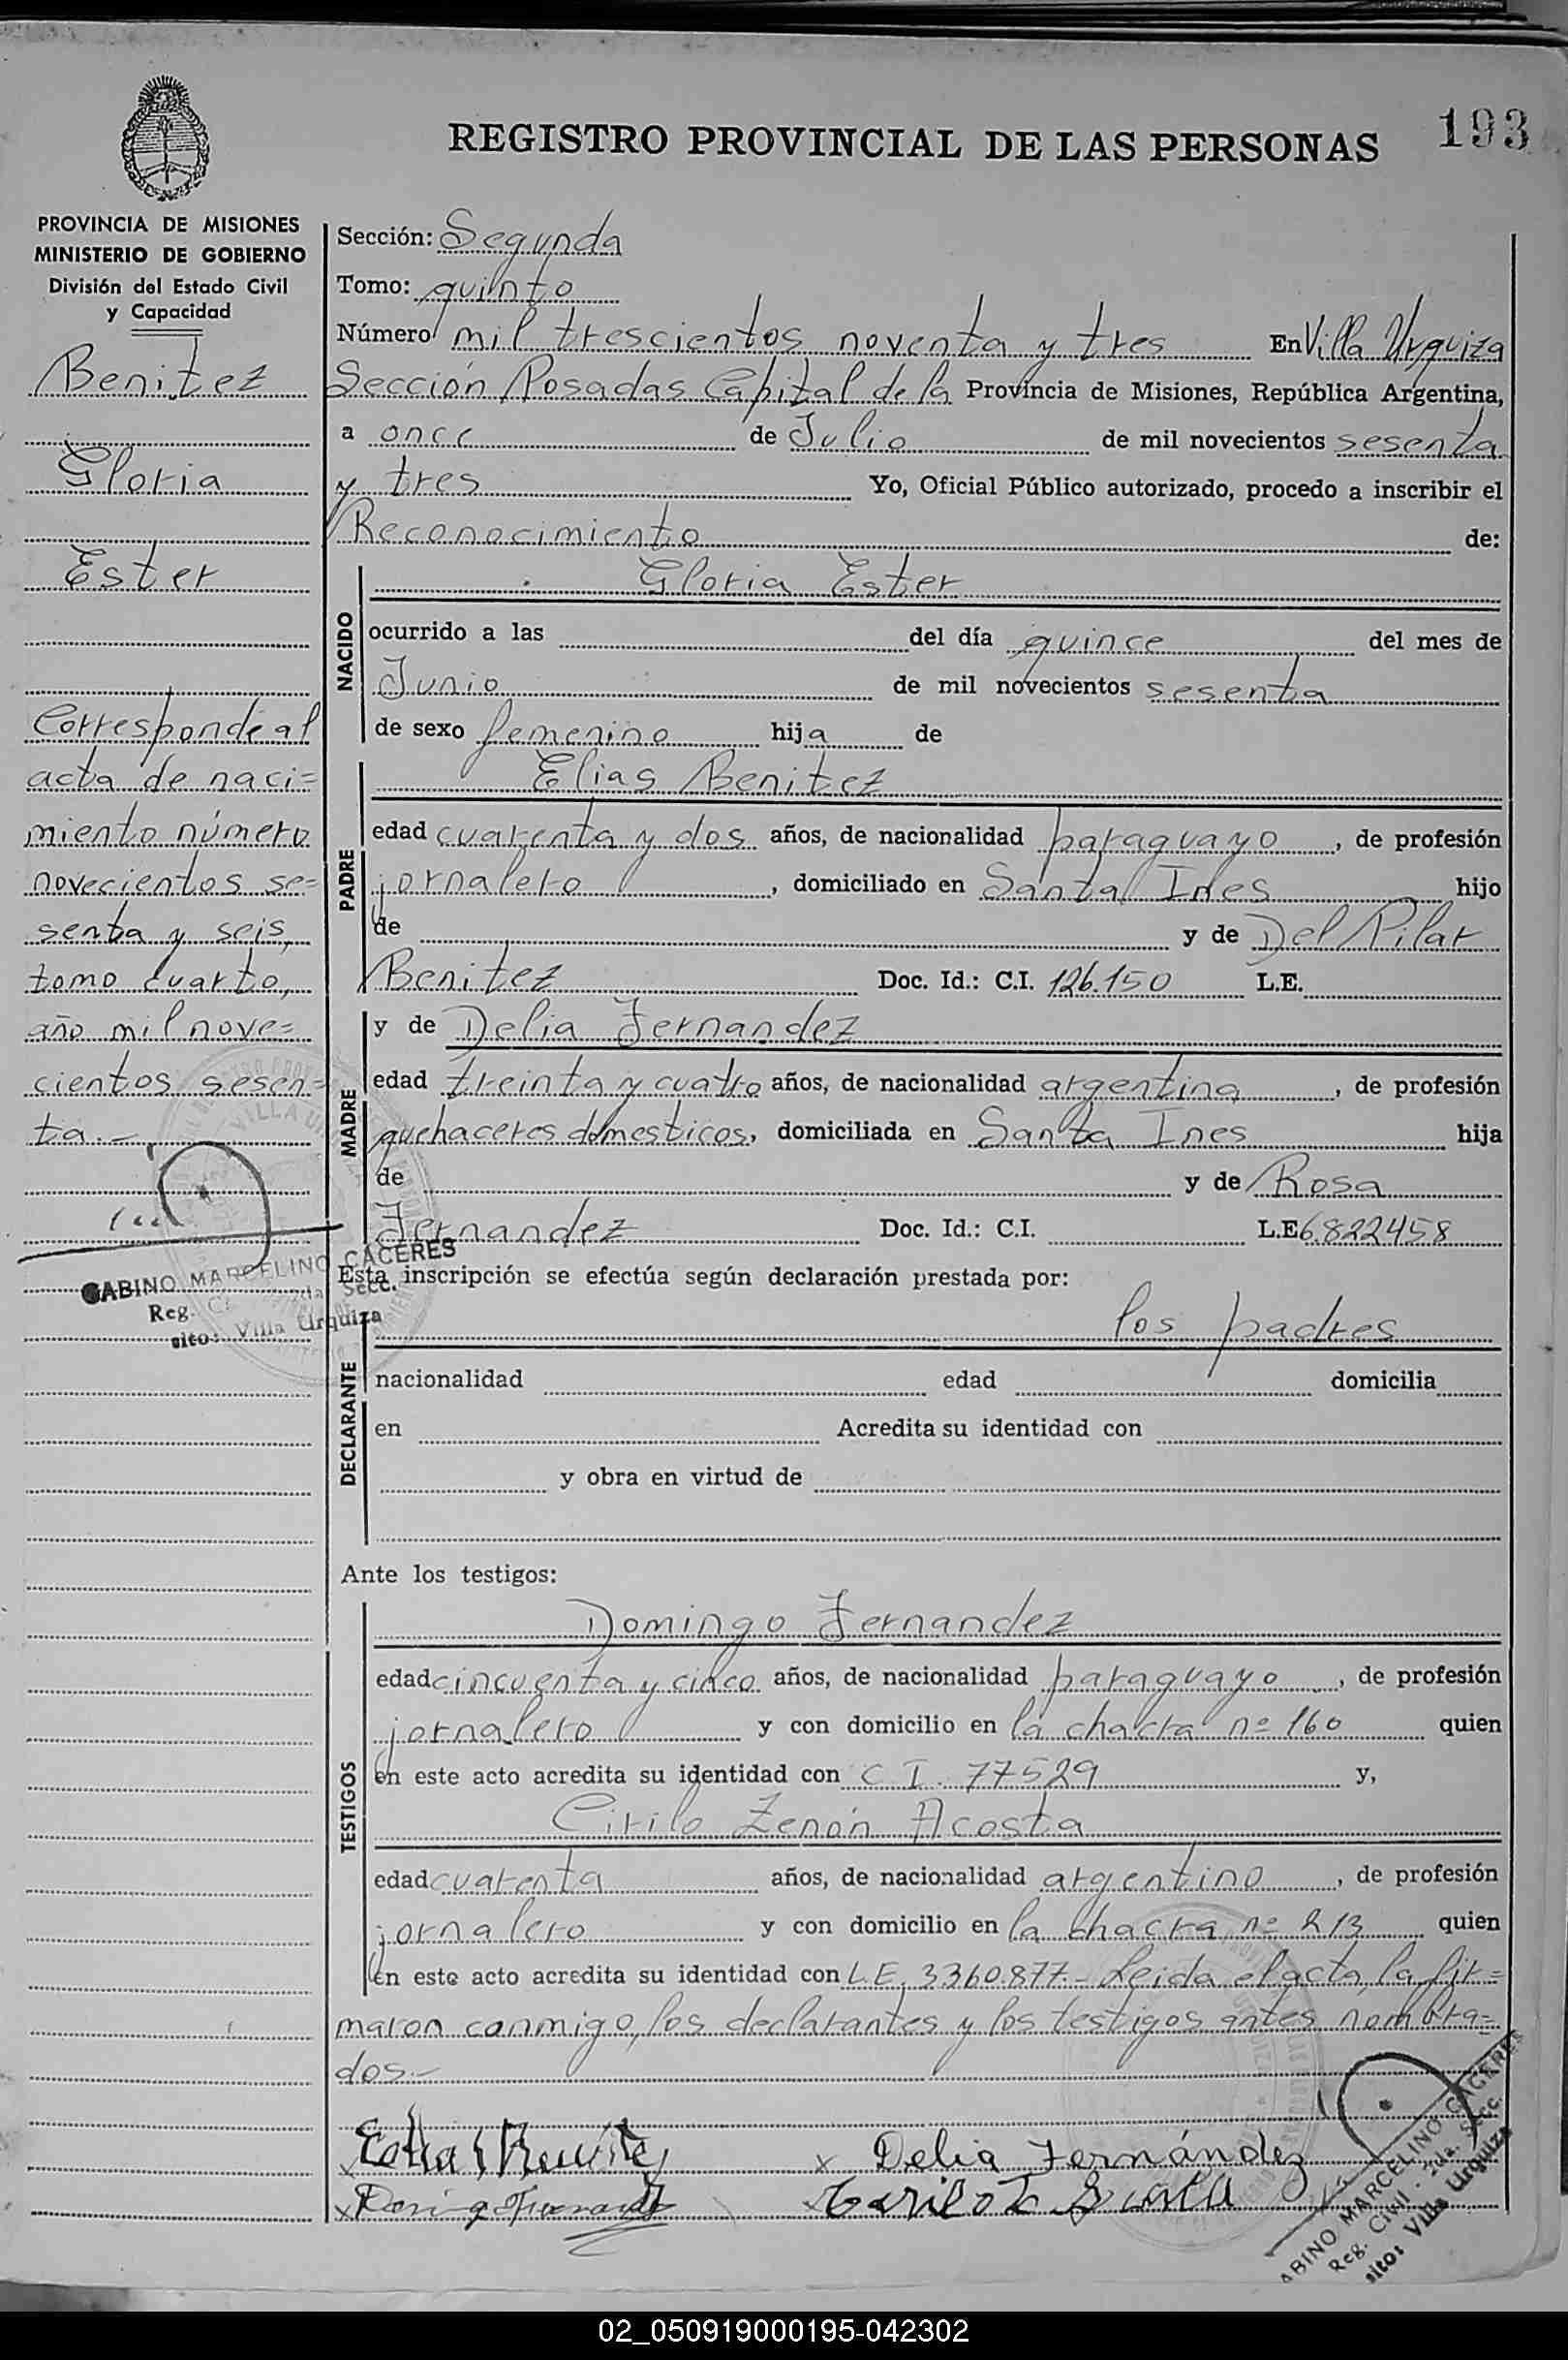 REGISTRO PROVINCIAL DE LAS PERSONAS 193
PROVINCIA DE MISIONES
MINISTERIO DE GOBIERNO
División del Estado Civil
y Capacidad
Benitez
Gloria
Ester
Corresponde al
acta de naci=
miento número
novecientos se=
senta y seis,
tomo cuarto,
año mil nove=
cientos sesen=
ta.-
GABINO MARCELINO CACERES
Reg. Civil 2da Secc.
sito: Villa Urquiza
Sección: Segunda
Tomo: quinto
Número mil trescientos noventa y tres En Villa Urquiza
Sección Posadas Capital de la Provincia de Misiones, República Argentina,
a once de Julio de mil novecientos sesenta
y tres Yo, Oficial Público autorizado, procedo a inscribir el
Reconocimiento de:
NACIDO
Gloria Ester
ocurrido a las del día quince del mes de
Junio de mil novecientos sesenta
de sexo femenino hija de
PADRE
Elias Benitez
edad cuarenta y dos años, de nacionalidad paraguayo, de profesión
jornalero, domiciliado en Santa Ines hijo
de y de Del Pilar
Benitez Doc. Id.: C.I. 126.150 L.E.
MADRE
y de Delia Fernandez
edad treinta y cuatro años, de nacionalidad argentina, de profesión
quehaceres domesticos, domiciliada en Santa Ines hija
de y de Rosa
Fernandez Doc. Id.: C.I. L.E 6.822458
Esta inscripción se efectúa según declaración prestada por:
DECLARANTE
los padres
nacionalidad edad domicilia
en Acredita su identidad con
y obra en virtud de
Ante los testigos:
TESTIGOS
Domingo Fernandez
edad cincuenta y cinco años, de nacionalidad paraguayo, de profesión
jornalero y con domicilio en la chacra nº 160 quien
en este acto acredita su identidad con C I. 77529 y,
Cirilo Zenón Acosta
edad cuarenta años, de nacionalidad argentino, de profesión
jornalero y con domicilio en la chacra nº 213 quien
en este acto acredita su identidad con L.E. 3.360.877.- Leida el acta, la fir=
maron conmigo, los declarantes y los testigos antes nombra=
dos.-
x Delia Fernández
GABINO MARCELINO CACERES
Reg. Civil - 2da. Secc.
sito: Villa Urquiza
02_050919000195-042302